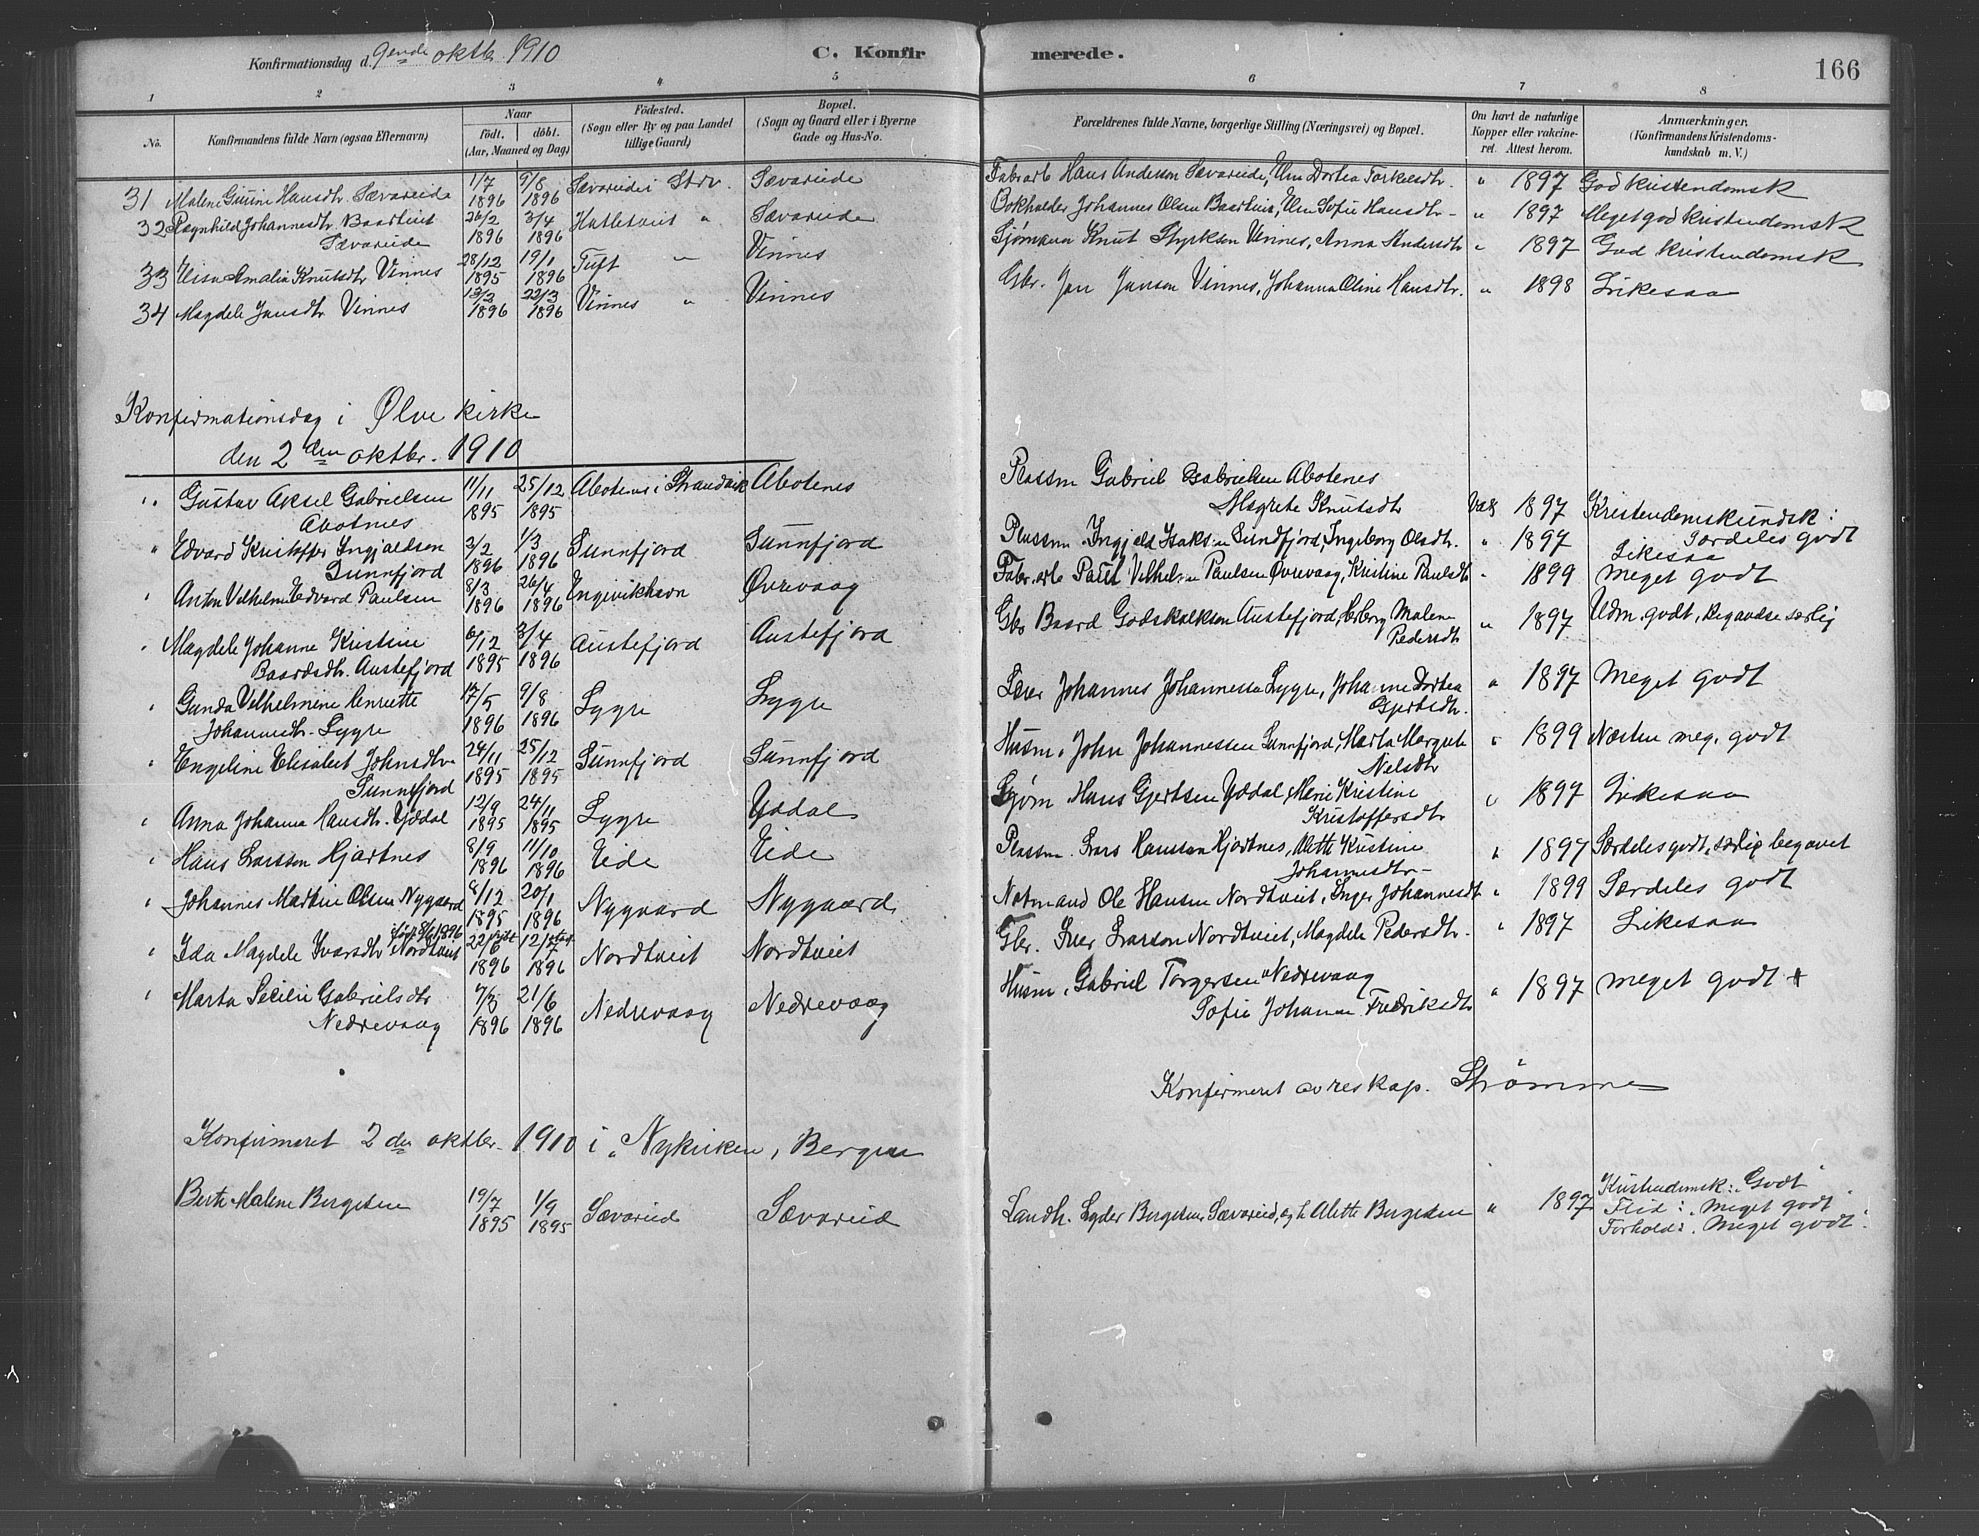 Konfirmationsdag d. 9ende oktb 1910
C. Konfirmerede.
166
1 2 3 4 5 6 7 8
No.
Konfirmandens fulde Navn (ogsaa Efternavn)
Naar
født. døbt.
(Aar, Maaned og Dag)
Fødested.
(Sogn eller By og paa Landet tillige Gaard)
Bopæl.
(Sogn og Gaard eller i Byerne Gade og Hus-No.
Forældrenes fulde Navne, borgerlige Stilling (Næringsvei) og Bopæl.
Om havt de naturlige Kopper eller vakcineret. Attest herom.
Anmærkninger.
(Konfirmandens Kristendomskundskab m. V.)
31 Malene Gurine Hansdtr. Sævareide 1/7 1896 9/8 1896 Sævareide i Strv. Sævareide Fabrarb Hans Anderson Sævareide, Elen Dortea Torkelsdtr. " 1897 God kristendomsk
32 Ragnhild Johannesdtr. Baartveit Sævareide 26/2 1896 3/4 1896 Hatletveit " Sævareide Bokholder Johannes Olsen Baartveit, Elen Sofie Hansdtr - " 1897 Meget god kristendomsk
33 Elisa Amalia Knutsdtr Vinnes 28/12 1895 19/1 1896 Tuft " Vinnes Sjømann Knut Styrksen Vinnes, Anna Andersdtr " 1897 God kristendomsk
34 Magdele Jansdtr Vinnes 13/2 1896 22/3 1896 Vinnes " Vinnes Gbr. Jan Janson Vinnes, Johanna Oline Hansdtr. " 1898 Likesaa
Konfirmationsdag i Ølve kirke
den 2den oktbr. 1910
" Gustav Aksel Gabrielsen Abotnes 11/11 1895 25/12 1895 Abotenes i Strandvik Abotenes Plassm Gabriel Gabrielsen Abotenes Magrete Knutsdtr Vak 1897 Kristendomskundsk: Særdeles godt
" Edvard Kristoffer Ingjaldsen Sunnfjord 2/2 1896 1/3 1896 Sunnfjord Sunnfjord Plassm. Ingjeld Isaksen Sundfjord, Ingeborg Olsdtr. " 1897 Likesaa
" Anton Velhelm Edvard Paulsen 8/3 1896 26/4 1896 Engevikhavn Øvrevaag Fabr.arb Paul Velhelm Paulsen Øvrevaag, Kristine Paulsdtr " 1899 Meget godt
" Magdele Johanne Kristine Baardsdtr. Austefjord 6/12 1895 3/4 1896 Austefjord Austefjord Gbr Baard Godskalksen Austefjord, Malene Pedersdtr " 1897 Udm. godt, Begavelse særlig
" Gunda Velhelmine Henriette Johannesdtr. Lygre 17/5 1896 9/8 1896 Lygre Lygre Johannes Johannessen Lygre, Johanne Dortea Gjertsdtr. " 1897 Meget godt
" Engeline Elisabet Johnsdtr Sunnfjord 24/11 1895 25/12 1895 Sunnfjord Sunnfjord Husm. John Johannessen Sunnfjord, Marta Margrete Nelsdtr " 1899 Næsten meg. godt
" Anna Johanna Hansdtr. Yddal 12/9 1895 24/11 1895 Lygre Yddal Sjøm Hans Gjertsen Yddal, Marie Kristine Kristoffersdtr " 1897 Likesaa
" Hans Larsson Hjartnes 8/9 1896 11/10 1896 Eide Eide Plassm. Lars Hansson Hjartnes, Alette Kristine Johannesdtr - " 1897 Særdeles godt, særlig begavet
" Johannes Martin Olsen Nygaard 8/12 1895 20/1 1896 Nygaard Nygaard Notmand Ole Hansen Nordtveit, Inger Johannesdt " 1899 Særdeles godt
" Ida Magdele Ivarsdtr Nordtveit 22/6 1896 12/7 1896 Nordtveit Nordtveit Gbr. Iver Larson Nordtveit, Magdele Pedersdtr. " 1897 Likesaa
" Marta Secilie Gabrielsdtr Nedrevaag 1896 21/6 1896 Nedrevaag Nedrevaag Husm. Gabriel Torgersen Nedrevaag Sofie Johanne Fredriksdtr " 1897 meget godt +
Konfirmeret av res kap. Strømme
Konfirmeret 2den oktbr. 1910 i "Nykirken, Bergen
Berte Malene Bergesen 19/7 1895 1/9 1895 Sævareid Sævareid Landh. Lyder Bergesen, Sævareid, og h. Alette Bergesen " 1897 Kristendomsk: "Godt"
Flid: "Meget godt"
Forhold: "Meget godt".